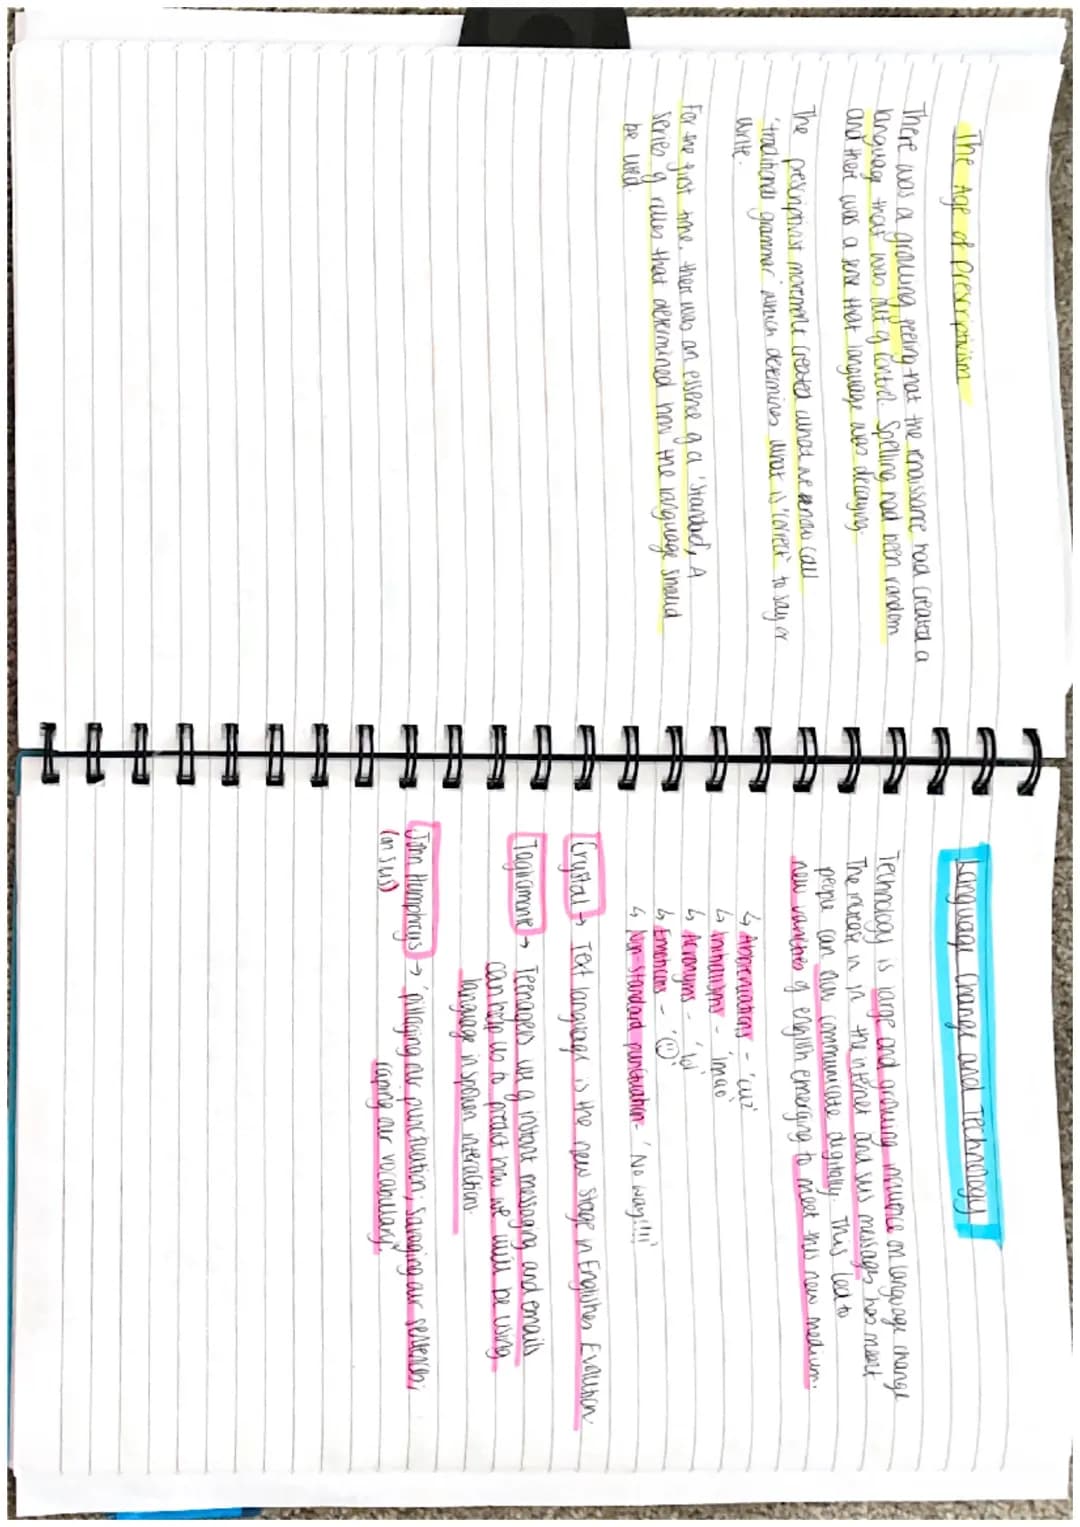 The Age of Prescriptivism
There was a growing feeling that the renaissance had created a
language that was out of control. Spelling had been random
and there was a sense that language was decaying.
The prescriptivist movement created what we know call
'traditional grammar' which determines what is 'correct' to say or
write.
For the first time, there was an essence of a 'standard', A
series of rules that determined how the language should
be used.
Language Change and Technology
Technology is large and growing influence on language change
The increase in in the internet and sms messages has meant
people can now communicate digitally. This led to
new varieties of english emerging to meet this new medium.
↳ Abbreviations - 'cuz'
↳ Initialisms - 'lmao'
↳ Acronyms - 'lol'
↳ Emoticons - '☺'
↳ Non-standard punctuation - 'No way!!!!'
Crystal → Text language is the new stage in Englishes Evolution
Tagliamonte → Teenagers use of instant messaging and emails
can help us to predict how we will be using
language in spoken interactions.
John Humphrys → 'pillaging our punctuation; savaging our sentences;
(on sms) raping our vocabulary'